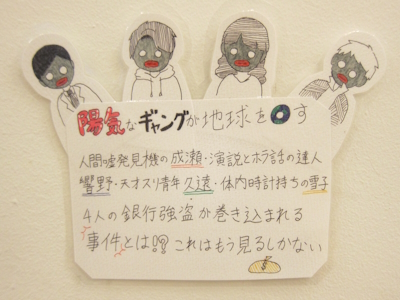 陽気なギャングが地球を回す
人間嘘発見機の成瀬・演説とホラ話の達人
響野・天才スリ青年久遠・体内時計持ちの雪子
4人の銀行強盗が巻き込まれる
事件とは!? これはもう見るしかない
$